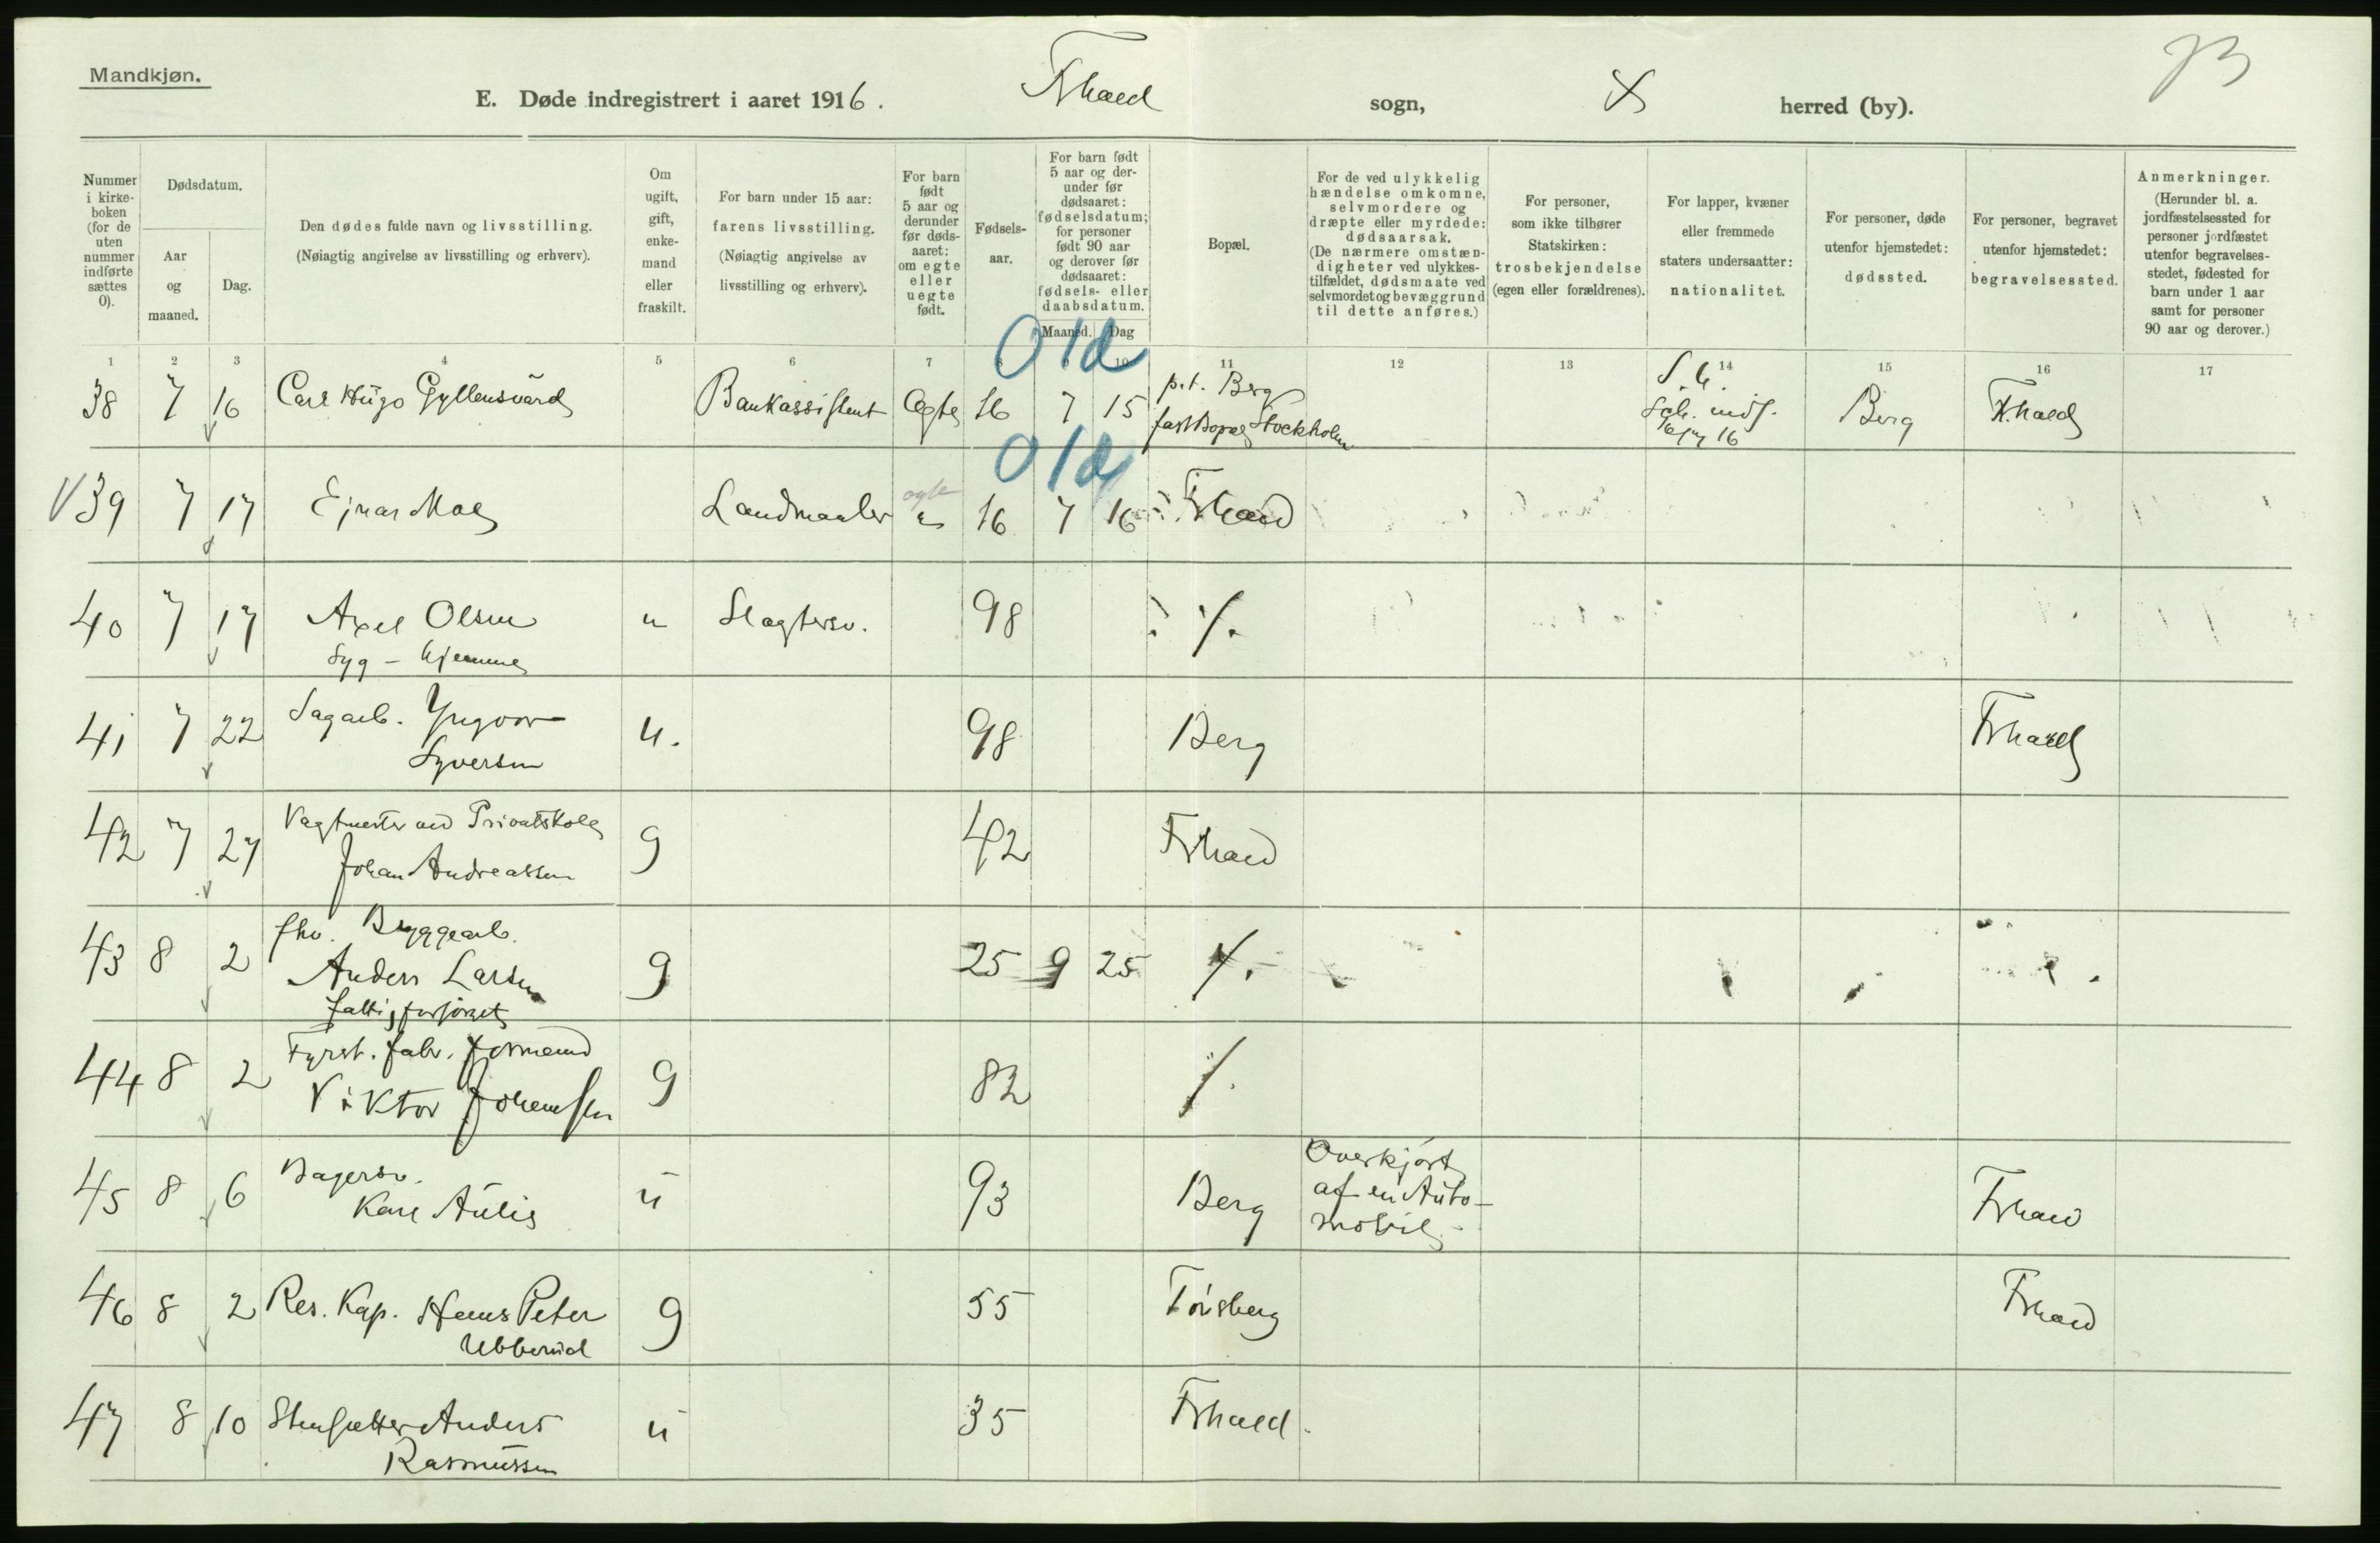 Mandkjøn.
E. Døde indregistrert i aaret 1916. Frhald sogn, herred (by).
73
Nummer i kirke-boken (for de uten nummer indførte sættes 0).
Dødsdatum.
Aar og maaned.
Dag.
Den dødes fulde navn og livsstilling.
(Nøiagtig angivelse av livsstilling og erhverv).
Om ugift, gift, enke-mand eller fraskilt.
For barn under 15 aar: farens livsstilling.
(Nøiagtig angivelse av livsstilling og erhverv).
For barn født 5 aar og derunder før døds-aaret: om egte eller uegte født.
Fødsels-aar.
For barn født 5 aar og der-under før dødsaaret: fødselsdatum; for personer født 90 aar og derover før dødsaaret: fødsels- eller daabsdatum.
Maaned. Dag
Bopæl.
For de ved ulykkelig hændelse omkomne, selvmordere og dræpte eller myrdede: dødsaarsak.
(De nærmere omstæn-digheter ved ulykkes-tilfældet, dødsmaate ved selvmord et og bevæggrund til dette anføres.)
For personer, som ikke tilhører Statskirken: trosbekjendelse (egen eller forældrenes).
For lapper, kvæner eller fremmede staters undersaatter: nationalitet.
For personer, døde utenfor hjemstedet: dødssted.
For personer, begravet utenfor hjemstedet: begravelsessted.
Anmerkninger.
(Herunder bl. a. jordfæstelsessted for personer jordfæstet utenfor begravelses-stedet, fødested for barn under 1 aar samt for personer 90 aar og derover.)
1 2 3 4 5 6 7 8 9 10 11 12 13 14 15 16 17
01d
38 7 16 Carl Hugo Gyllensvärd Bankassistent Egte 16 7 15 p.t. Berg
fast Bopæl Stockholm
Berg Frhald
01d
V 39 7 17 Ejnar Moe Landmaaler egte u 16 7 16 Frhald
40 7 17 Axel Olsen u Slagtersv. 98 ./.
Syg - hjemme
41 7 22 Sagarb. Yngvar u. 98 Berg Frhald
Syversen
42 7 27 Vagtmester ved Privatskole g 42 Frhald
Johan Andreassen
43 8 2 fhv. Bryggearb. g 25 9 25 ./.
Anders Larsen
fattigforsørget
44 8 2 Fyrst. fabr. formand g 82 ./.
Viktor Johansen
45 8 6 Bagersv. u 93 Berg Overkjørt Frhald
Karl Aulie af en Auto-
mobil
46 8 2 Res. Kap. Hans Peter g 55 Tønsberg Frhald
Ubberud
47 8 10 Stenhutter Anders u 35 Frhald.
Rasmussen